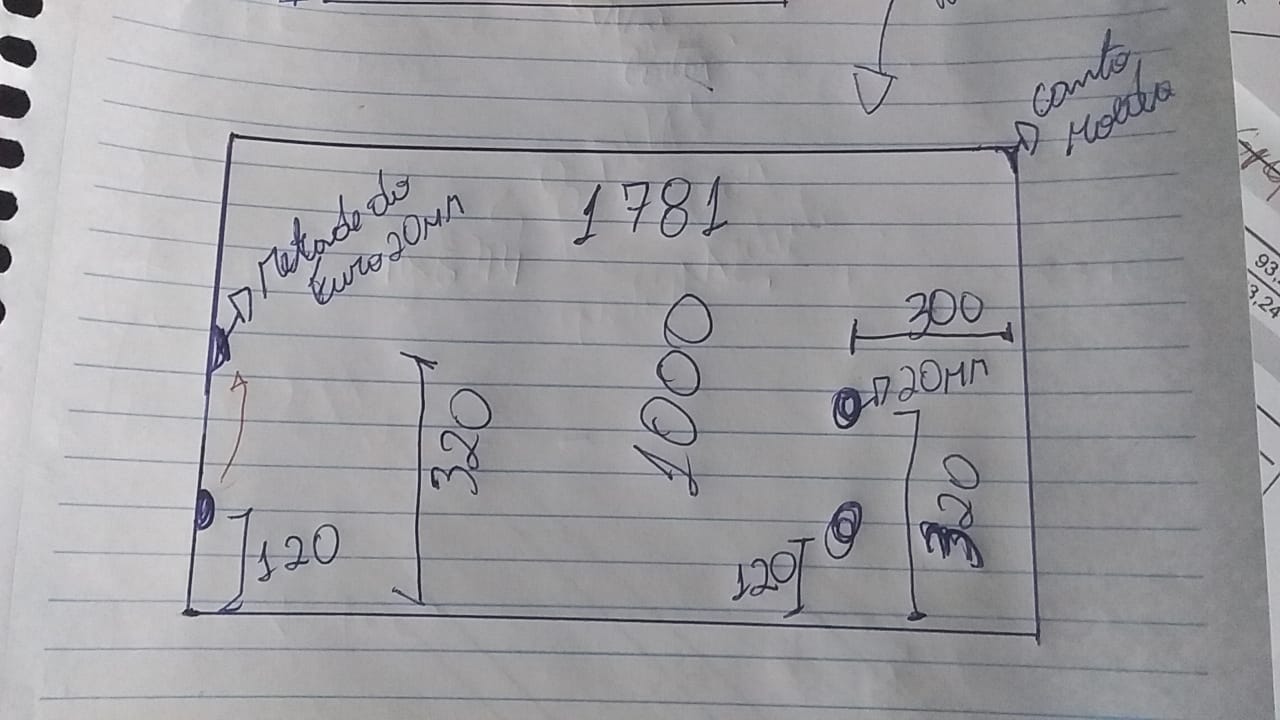 canto
Moeda
1781
Metade do
Furo 20MM
300
20MM
1000
320
320
120
120
93,
3,24